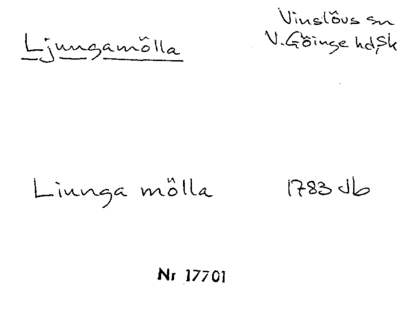 Ljungamölla
Vinslövs sn
V. Göinge hd, Sk
Liunga mölla
1783 db
Nr 17701